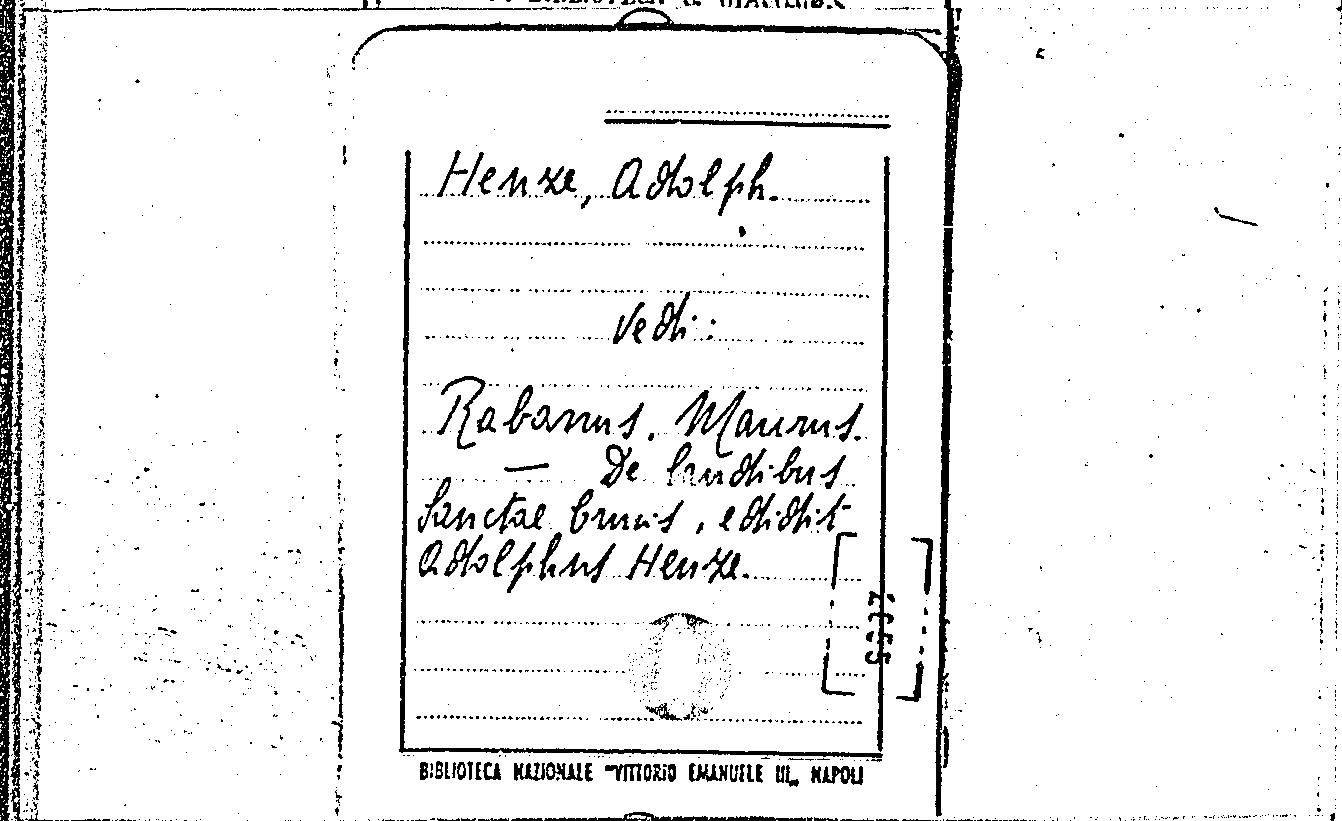 Henze, Adolph.
vedi:
Rabanus, Maurus.
— De laudibus
Sanctae Crucis, edidit
Adolphus Henze.
BIBLIOTECA NAZIONALE "VITTORIO EMANUELE III„ NAPOLI